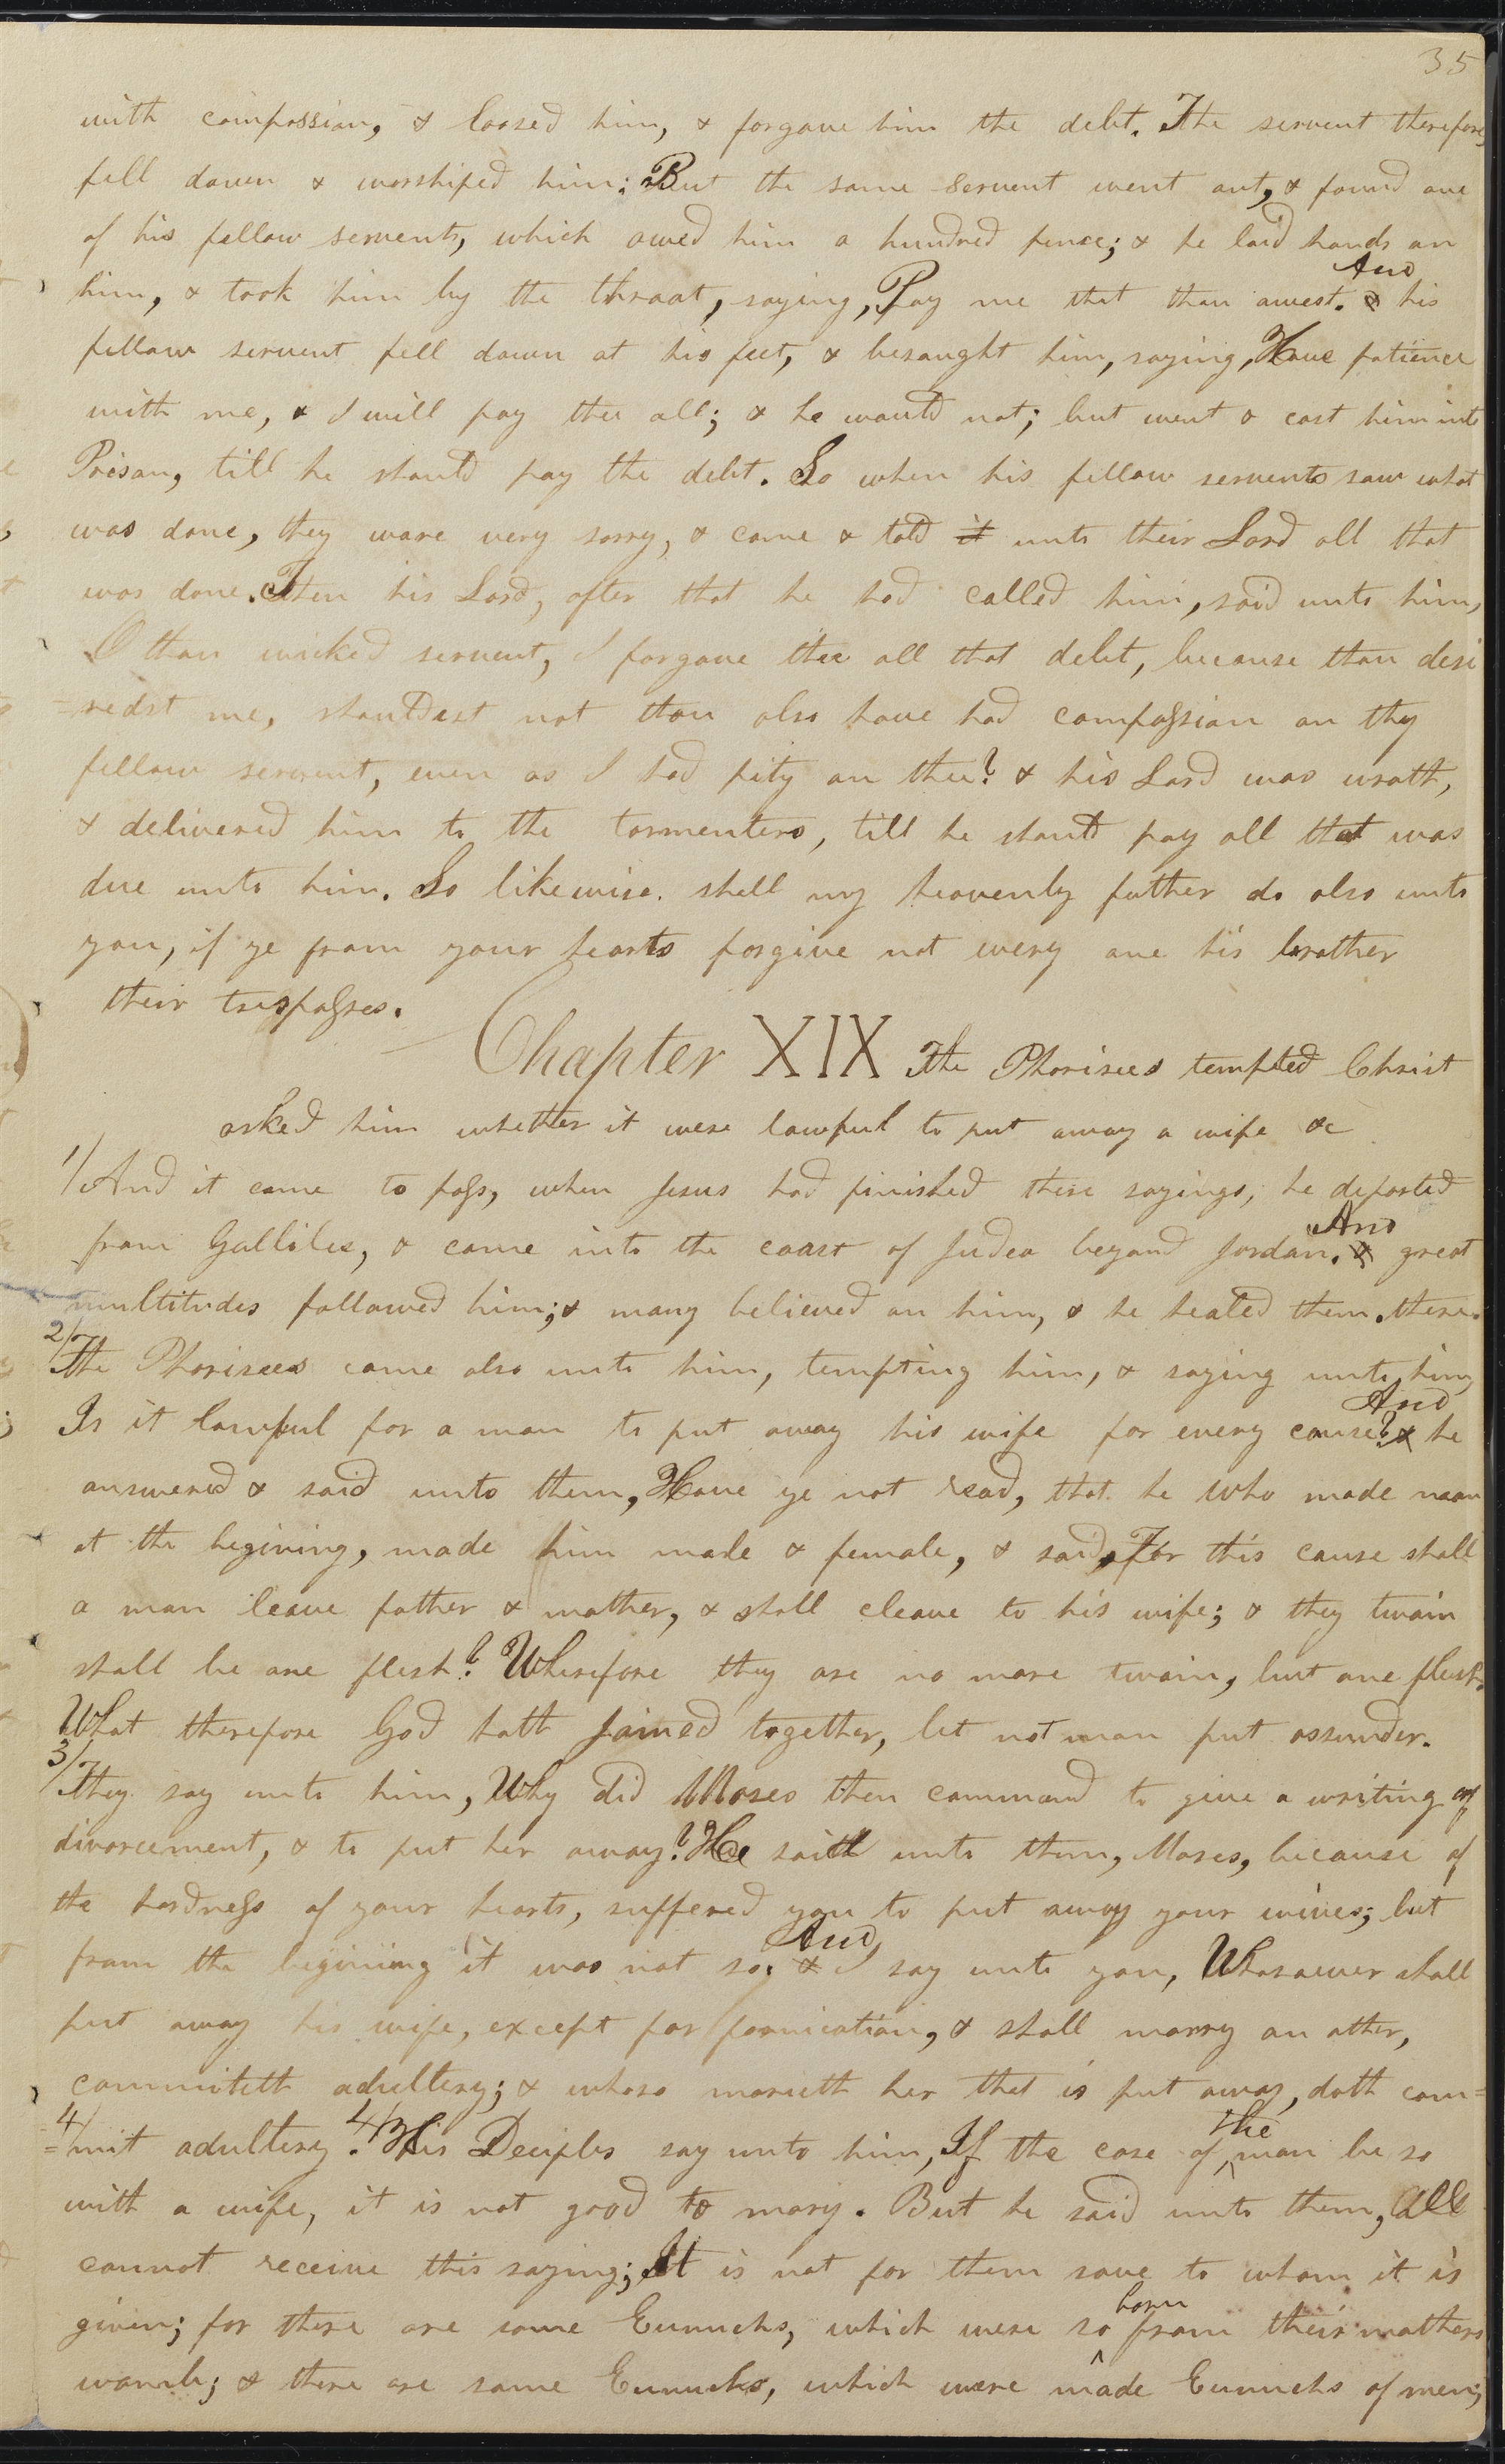 35
with compassion, & loosed him, & forgave him the debt. The servent therefore,
fell down & worshiped him: But the same servent went out, & found one
of his fellow servents, which owed him a hundred pence; & he laid hands on
him, & took him by the throat, saying, Pay me that thou owest. & And his
fellow servent fell down at his feet, & besaught him, saying, Have patience
with me, & I will pay thee all; & he would not; but went & cast him into
Prison, till he should pay the debt. So when his fellow servents saw what
was done, they ware very sorry, & came & told it unto their Lord all that
was done. Then his Lord, after that he had called him, said unto him,
O thou wicked servent, I forgave thee all that debt, because thou desi
=redst me, shouldest not thou also have had compassion on thy
fellow servent, even as I had pity on thee? & his Lord was wroth,
& delivered him to the tormenters, till he should pay all that was
due unto him. So likewise. shall my heavenly father do also unto
you, if ye from your hearts forgive not every one his brother
their trespasses.
Chapter XIX The Pharisees tempted Christ
asked him whether it were lawful to put away a wife &c
1/ And it came to pass, when Jesus had finished these sayings, he departed
from Gallilee, & came into the coast of Judea beyond Jordan. & And great
multitudes followed him; & many believed on him, & he healed them there.
2/ The Pharisees came also unto him, tempting him, & saying unto him,
Is it lawful for a man to put away his wife for every cause? & And he
answered & said unto them, Have ye not read, that he who made man
at the begining, made him male & female, & said, For this cause shall
a man leave father & mother, & shall cleave to his wife; & they twain
shall be one flesh? Wherefore they are no more twain, but one flesh.
What therefore God hath Joined together, let not man put assunder.
3/ They say unto him, Why did Moses then command to give a writing of
divorcement, & to put her away? He saith unto them, Moses, because of
the hardness of your hearts, suffered you to put away your wives; but
from the begining it was not so. & And I say unto you, Whosoever shall
put away his wife, except for fornication, & shall marry an other,
committeth adultery; & whoso marieth her that is put away, doth com=
4/ =mit adultery. 4/ His Deciples say unto him, If the case of the man be so
with a wife, it is not good to mary. But he said unto them, All
cannot receive this saying; It is not for them save to whom it is
given; for there are some Eunuchs, which were so born from their mothers
womb; & there are some Eunuchs, which were made Eunuchs of men;